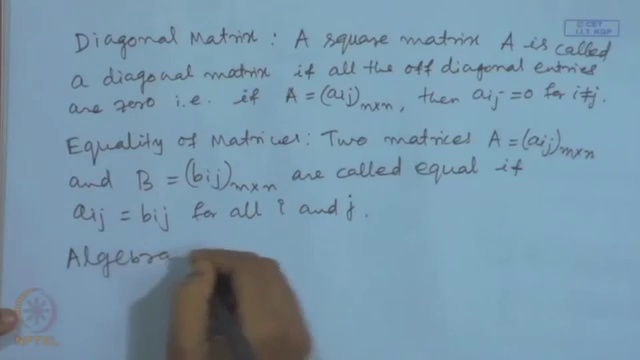 © CET
I.I.T. KGP
Diagonal Matrix : A square matrix A is called
a diagonal matrix if all the off diagonal entries
are zero i.e. if A = (aij)n×n, then aij = 0 for i≠j.
Equality of Matrices: Two matrices A = (aij)m×n
and B = (bij)m×n are called equal if
aij = bij for all i and j.
Algebra
NPTEL